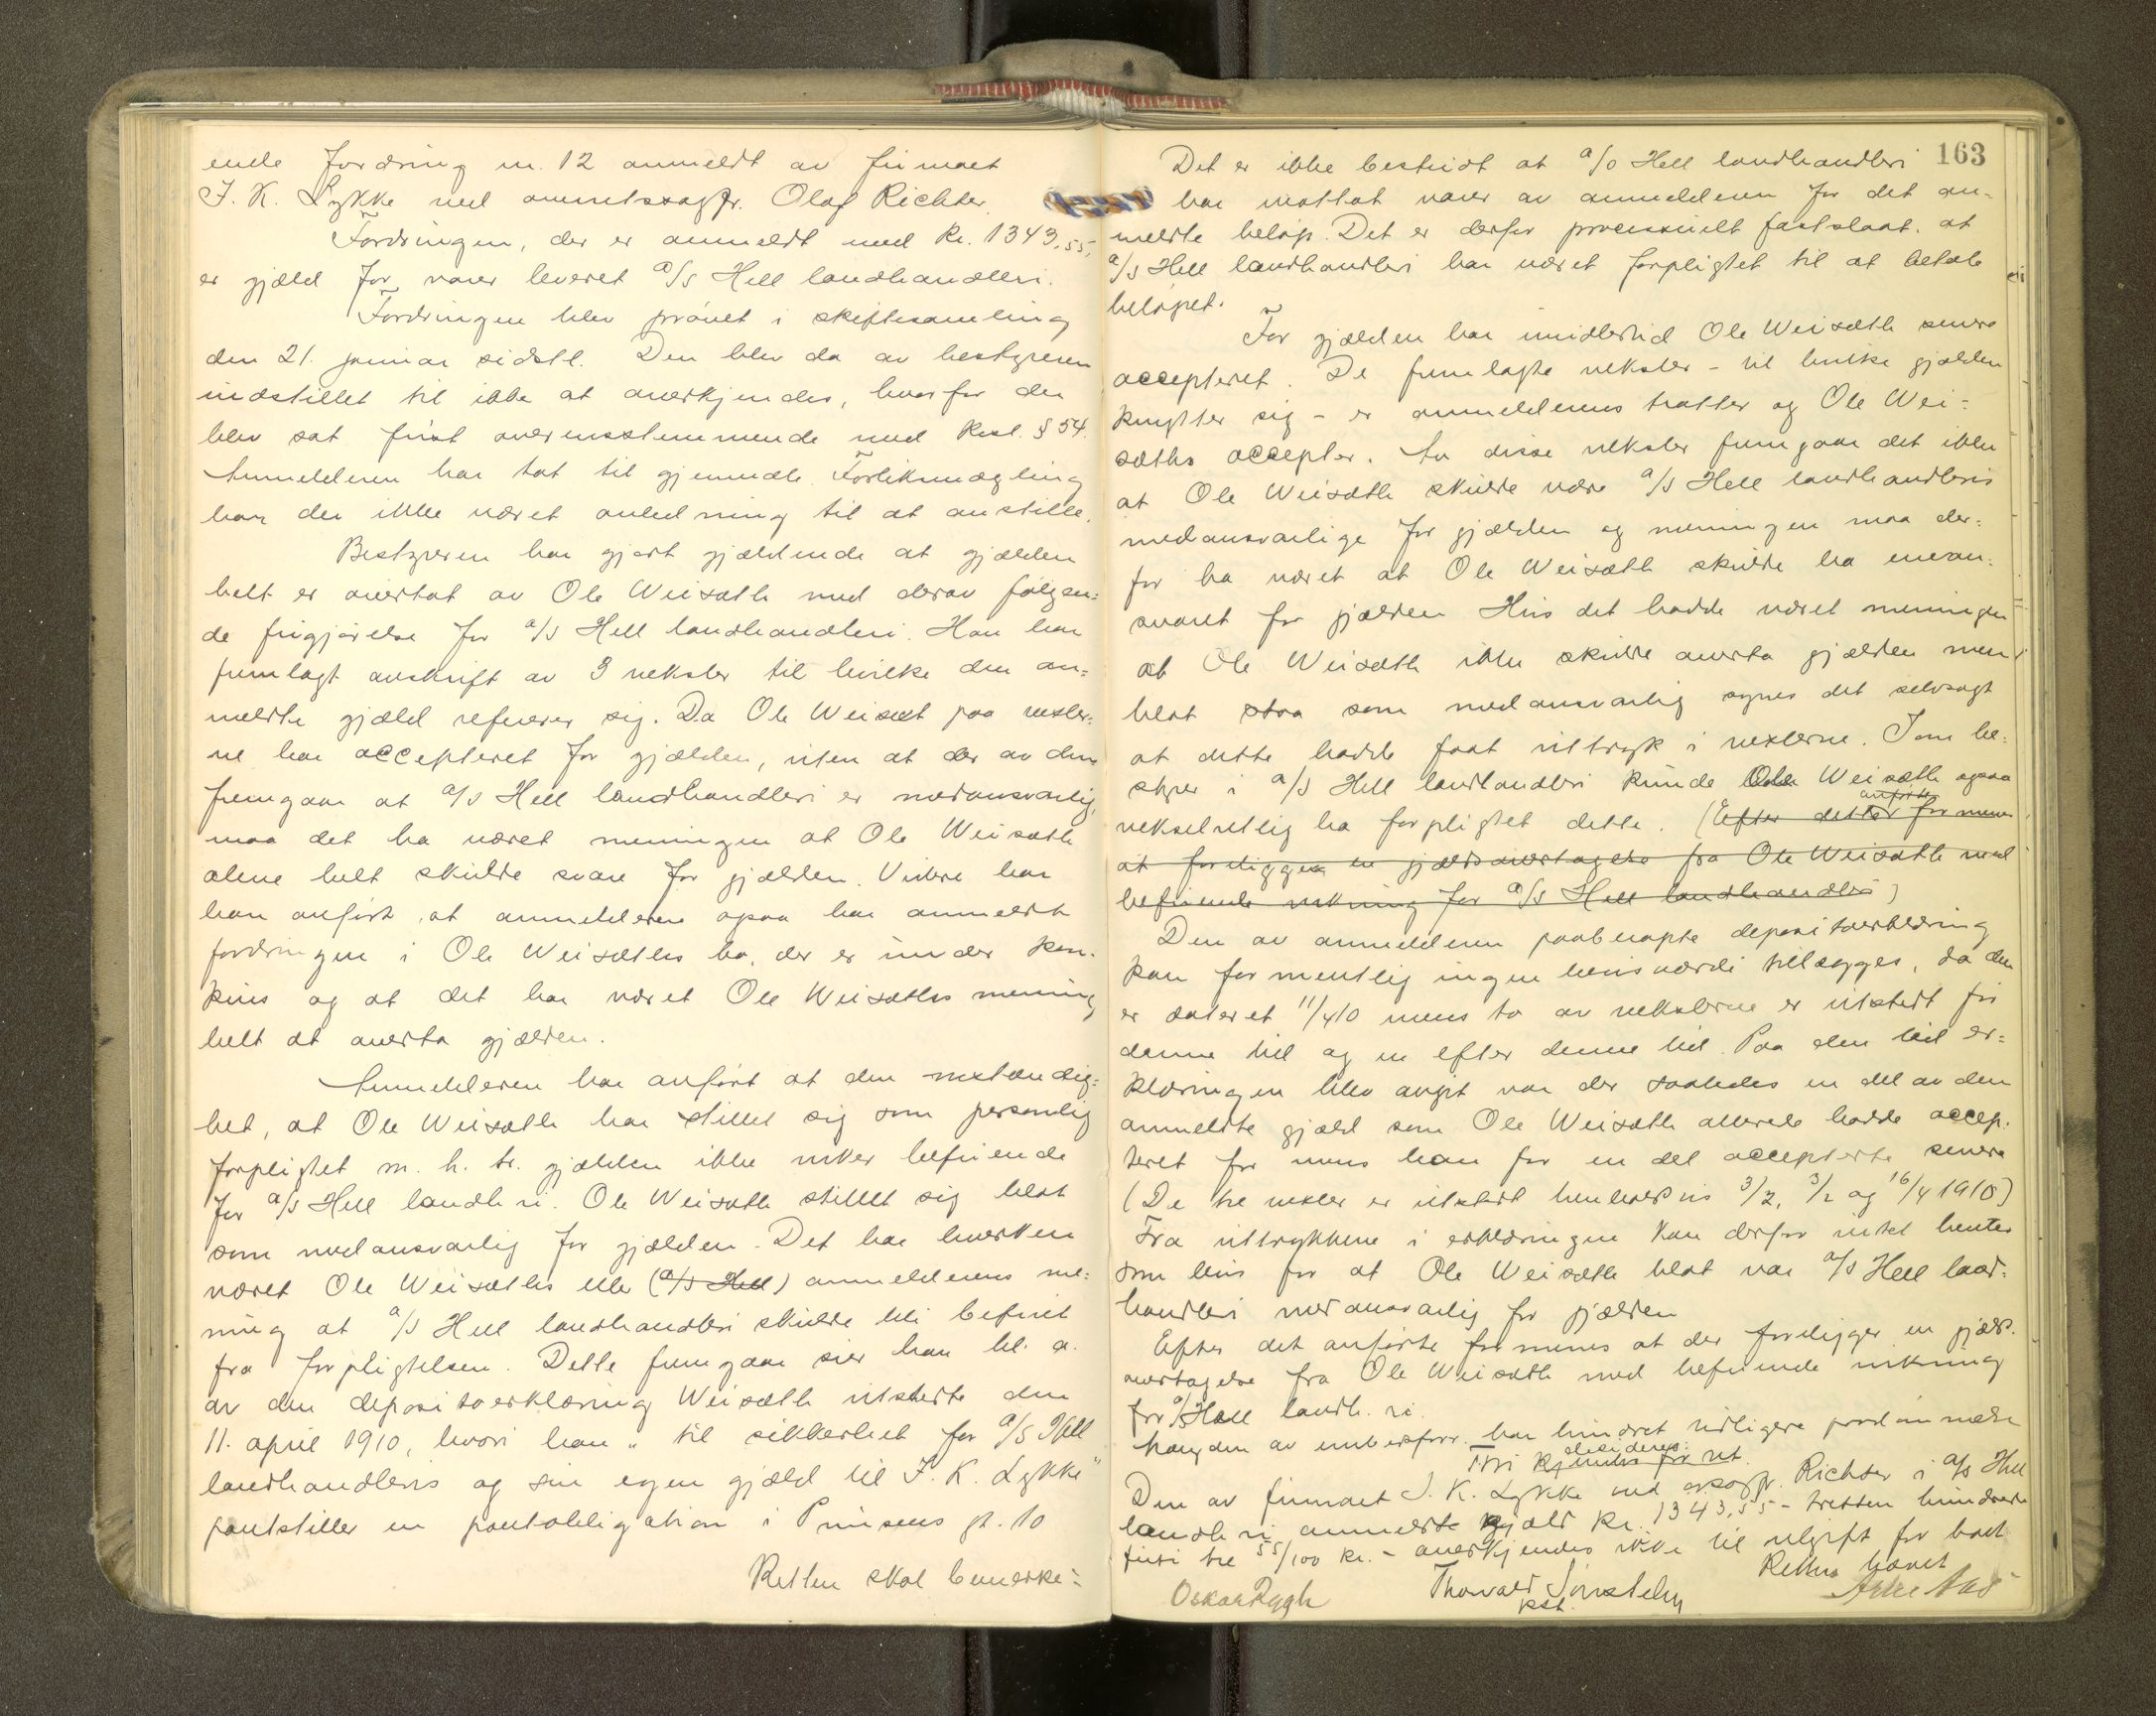 ende Fordring nr. 12 anmeldt av firmaet
I. K. Lykke ved overretssagfr. Olaf Richter.
Fordringen, der er anmeldt med kr. 1343,55,
er gjæld for varer leveret a/s Hell landhandleri.
Fordringen blev prøvet i skiftesamling
den 21. januar sidstl. Den blev da av bestyreren
indstillet til ikke at anerkjendes, hvorfor der
blev sat frist overensstemmende med kksl. § 54.
Anmelderen har tat til gjenmæle. Forliksmægling
har der ikke været anledning til at anstille.
Bestyreren har gjort gjældende at gjælden
helt er overtat av Ole Weisæth med derav følgen=
de frigjørelse for a/s Hell landhandleri. Han har
fremlagt avskrift av 3 veksler til hvilke den an=
meldte gjæld refererer sig. Da Ole Weisæt paa veksler=
ne har accepteret for gjælden, uten at der av dem
fremgaar at a/s Hell landhandleri er medansvarlig,
maa det ha været meningen at Ole Weisæth
alene helt skulde svare for gjælden. Videre har
han anført, at anmelderen ogsaa har anmeldt
fordringen i Ole Weisæths bo, der er under kon-
kurs og at det har været Ole Weisæths mening
helt at overta gjælden.
Anmelderen har anført at den omstændig=
het, at Ole Weisæth har stillet sig som personlig
forpligtet m. h. t. gjælden ikke virker befriende
for a/s Hell landh.ri. Ole Weisæth stillet sig blot
som medansvarlig for gjælden. Det har hverken
været Ole Weisæths eller (a/s Hell) anmelderens me=
ning at a/s Hell landhandleri skulde bli befriet
fra forpligtelsen. Dette fremgaar sier han bl. a.
av den depositoerklæring Weisæth utstedte den
11. april 1910, hvori han "til sikkerhet for a/s Hell
landhandleris og sin egen gjæld til I. K. Lykke"
pantstiller en pantobligation i Prinsens gt. 10
Retten skal bemerke:
163
Det er ikke bestridt at a/s Hell landhandleri
har mottat varer av anmelderen for det an-
meldte beløp. Det er derfor processuelt fastslaat, at
a/s Hell landhandleri har været forpligtet til at betale
beløpet.
For gjælden har imidlertid Ole Weisæth senere
accepteret. De fremlagte veksler - til hvilke gjælden
knytter sig - er anmelderens tratter og Ole Wei=
sæths accepter. Av disse veksler fremgaar det ikke
at Ole Weisæth skulde være a/s Hell landhandleris
medansvarlige for gjælden og meningen maa der=
for ha været at Ole Weisæth skulde ha eneran=
svaret for gjælden Hvis det hadde været meningen
at Ole Weisæth ikke skulde overta gjælden men
blot staa som medansvarlig synes det selvsagt
at dette hadde faat uttryk i vekslerne. Som be=
styrer i a/s Hell landhandleri kunde Ole Weisæth ogsaa
vekselretlig ha forpligtet dette. (Efter det anførte formenes
at foreligge en gjældsovertagelse fra Ole Weisæth med
befriende virkning for a/s Hell landhandleri)
Den av anmelderen paaberopte depositoerklæring
kan formentlig ingen bevisværdi tillægges, da den
er dateret 11/4 10 mens to av vekslerne er utstedt før
denne tid og en efter denne tid. Paa den tid er=
klæringen blev avgit var der saaledes en del av den
anmeldte gjæld som Ole Weisæth allerede hadde accep=
teret for mens han for en del accepterte senere
(De tre veksler er utstedt henholdsvis 3/2, 3/2 og 16/4 1910)
Fra uttrykkene i erklæringen kan derfor intet hentes
som bevis for at Ole Weisæth blot var a/s Hell land=
handleri medansvarlig for gjælden
Efter det anførte formenes at der foreligger en gjælds-
overtagelse fra Ole Weisæth med befriende virkning
for a/s Hell landh.ri.
av embedsforr. har hindret tidligere paadømmelse
Thi kjendes for ret
decideres:
Den av firmaet I. K. Lykke ved orsagfr. Richter i a/s Hell
landh.ri anmeldte gjæld kr. 1343,55 - tretten hundrede
firti tre 55/100 kr. - anerkjendes ikke til utgift for boet
Retten hævet
Oskar Rygh
Thorvald
kst.